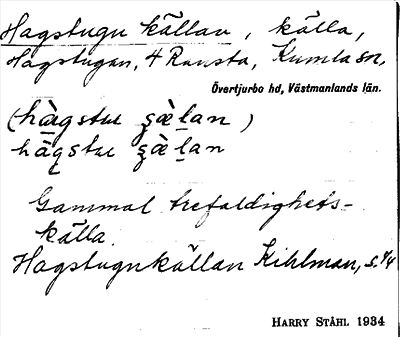 Hagstugu källan, källa,
Hagstugan, 4 Ransta, Kumla sn,
Övertjurbo hd, Västmanlands län.
(hàgstu ʂæ̀lan)
hàgstu ʂæ̀lan
Gammal trefaldighets-
källa.
Hagstugukällan Kihlman, s. 44
HARRY STÅHL 1934